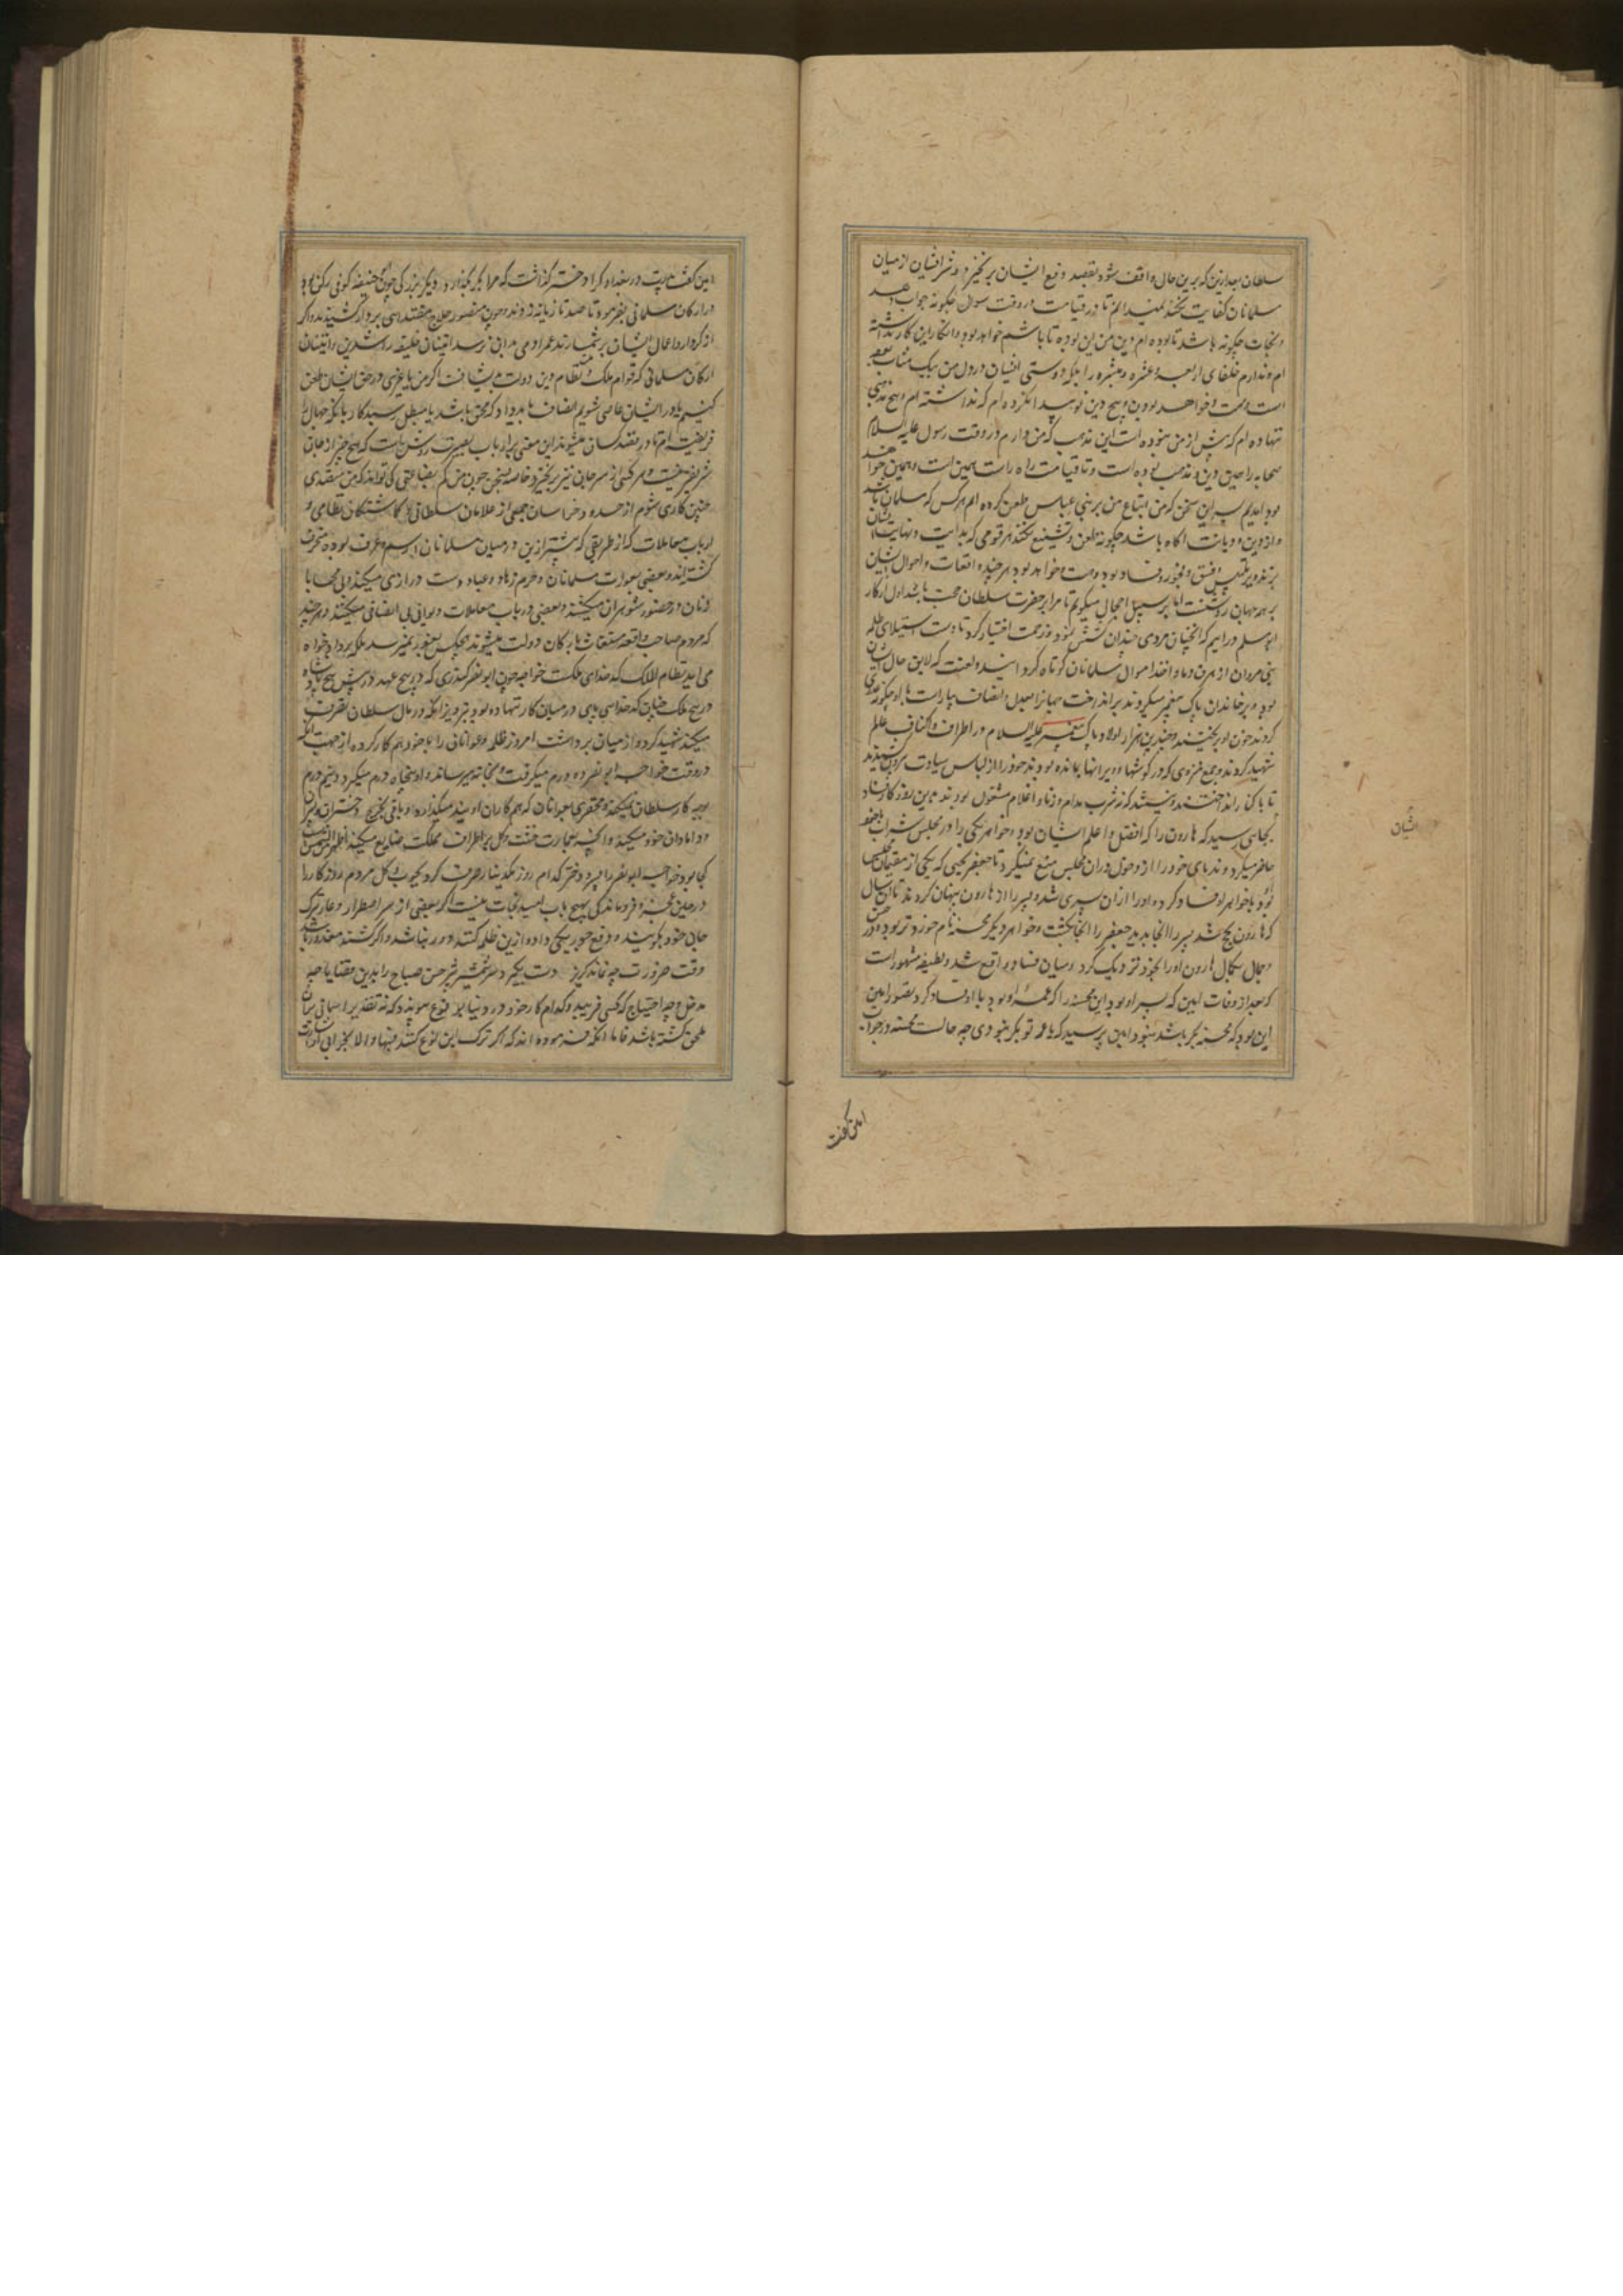 سلطان بعد ازین که برین حال واقف شود بقصد و قمع ایشان برنخیزد و شر افشان از میان
مسلمانان کفایت نکند نمیدانم تا در قیامت در وقت سوال چگونه جواب دهد
و نجات چگونه باشد تا بوده ام دین من این بوده تا باشم خواهد بود و انکار این کار نداشته
ام و ندارم خلفای اربعه و عشره مبشره را بلکه دوستی ایشان در دل من بیک مثابه
است و هست و خواهد بود و هیچ دین نو پیدا نکرده ام که نداشته ام و هیچ مذهبی
ننهاده ام که پیش از من نبوده است این مذهب که من دارم در وقت رسول علیه السلام
صحابه را همین دین و مذهب بوده است و تا قیامت راه راست همین است و همین خواهد
بود آمدیم بسر این سخن که من و اتباع من بر بنی عباس طعن کرده ایم هر کس که مسلمان باشد
و از دین و دیانت آگاه باشد چگونه طعن و تشنیع نکند بر قومی که بدایت و نهایت ایشان
بر تزویر و تلبیس و فسق و فجور و فساد بوده و هست و خواهد بود هر چند واقعات و احوال ایشان
بر همه جهان روشنست اما بر سبیل اجمال میگویم تا مرا بر حضرت سلطان حجت باشد اول از کار
ابو مسلم در آیم که آنچنان مردی چندان کوشش نمود و زحمت اختیار کرد تا دست استیلای ظلمه
بنی مروان از هرق دما و اخذ اموال مسلمانان کوتاه گردانید و لعنت که لایق حال ایشان
بود و بر خاندان پاک پیغمبر میکردند برانداخت جهانرا بعدل و انصاف بیاراست با او چگونه غدری
کردند خون او بریختند و چندین هزار اولاد پاک پیغمبر علیه السلام در اطراف و اکناف عالم
شهید کردند و جمع منزوی که در گوشها و ویرانها بمانده بودند خود را از لباس سیادت بیرون کشیدند
تا با کنار انداختند و نیستند که ز شرب مدام و زنا و اغلام مشغول بودند و بدین روزگار فساد
بجایی رسید که هارون را که افضل و اعلم ایشان بود و خواهر یکی را در مجلس شراب با خود
حاضر میکرد و ندمای خود را از دخول در آن مجلس منع نمیکرد تا جعفر یحیی که یکی از مقیمان مجلس
بود با خواهر او فساد کرد و او را از آن پسری شد و پسر را از هارون پنهان کردند تا آن سال
که هارون بحج شد پسر را آنجا بدید جعفر را آنجا بکشت و خواهر دیگر محسنه نام خردتر بود و در حسن
و جمال بکمال هارون او را بخود نزدیک کرد و میان فساد واقع شد و لطیفه مشهور است
که بعد از وفات امین که پسر او بود این محسنه را که عمه او بود با او فساد کرد تصور امین
این بود که محسنه بکر باشد نبود امین پرسید که یا عمه تو بکر نبودی چه حالست محسنه در جواب
امین گفت
ایشان
امین گفت پدرت در بغداد کرا دختر گذاشت که مرا بکر بگذارد و دیگر بزرگی چون ابو حنیفه کوفی رکن بود
در ارکان مسلمانی بفرموده تا صد تازیانه زدند و چون منصور حلاج مقتدایی بر دار کشیدند و اگر
از کردار و اعمال ایشان برشمارند عمر آدمی بدان نرسد اینان خلیفه راشدین و اینان
ارکان مسلمانی که قوام ملک و نظام دین و دولت بدیشانست اگر من یا غیری در حق ایشان طعن
کنیم یا در ایشان عاصی شویم انصاف باید داد که محق باشد یا مبطل رسید کار بانکه جهال را
فریفته ام تا در قصد کسان میشوند این معنی بر ارباب بصیرت روشن است که هیچ چیز از جان
شریفتر نیست و هر کسی از سر جان نیز برنخیزد خاصه بسخن چون من کم بضاعتی کی تواند که من متصدی
چنین کاری شوم از حدود خراسان جمعی از غلامان سلطانی و گماشتگان نظامی و
ارباب معاملات که از طریقی که پیشتر ازین در میان مسلمانان رسم و عرف بوده منحرف
گشته اند و بعضی بعورات مسلمانان و حرم زهاد و عباد دست درازی میکنند و بی محابا
زنان در حضور شوهران میکشند و بعضی در باب معاملات دیوانی بی انصافی میکنند و هر چند
که مردم صاحب واقعه استغاثه بارکان دولت میشوند هیچکس بغور نمیرسد بلکه بر دادخواه
می آید نظام الملک که کدخدای ملکت خواجه چون ابو نصر کندری که در هیچ عهد در پیش هیچ پادشاه
در هیچ ملک چنان کدخدایی پای در میان کار ننهاده بود بتزویر آنکه در مال سلطان تصرف
میکند شهید کرد و از میان برداشت امروز ظلمه و عوانان را با خود هم کار کرده از جهت آنکه
در وقت خواجه ابو نصر ده درم میگرفت و بخزانه میرسانید او پنجاه درم میگیرد و نیم درم
بوجه کار سلطان نمیکند و محقری بعوانان که هم کاران اویند میگذارد و باقی بخرج دختران و پسران
و دامادان خود میکند و آنچه بعمارت خشت و گل بر اطراف مملکت ضایع میکند اظهر من الشمس
کجا بود خواجه ابو نصر را پسر و دختر کدام روز یکدینار صرف کرد بچوب و گل مردم روزگار را
در چنین عجز و فروماندگی بهیچ باب امید نجات نیست اگر بعضی از سر اضطرار و عار ترک
جان خود بگویند و دفع جور یکی دو ازین ظلمه کنند دور نباشد و اگر کشند معذور باشند
وقت ضرورت چو نماند گریز دست بگیرد سر شمشیر تیز حسن صباح را بدین قضایا چه
مدخل و چه احتیاج که کسی فریبد و کدام کار خود در دنیا بوقوع پیوندد که نه تقدیر آسمانی بدان
ملحق گشته باشد فاما آنکه فرموده اند که اگر ترک این نوع کنند فبها و الا بخرابی اشارت